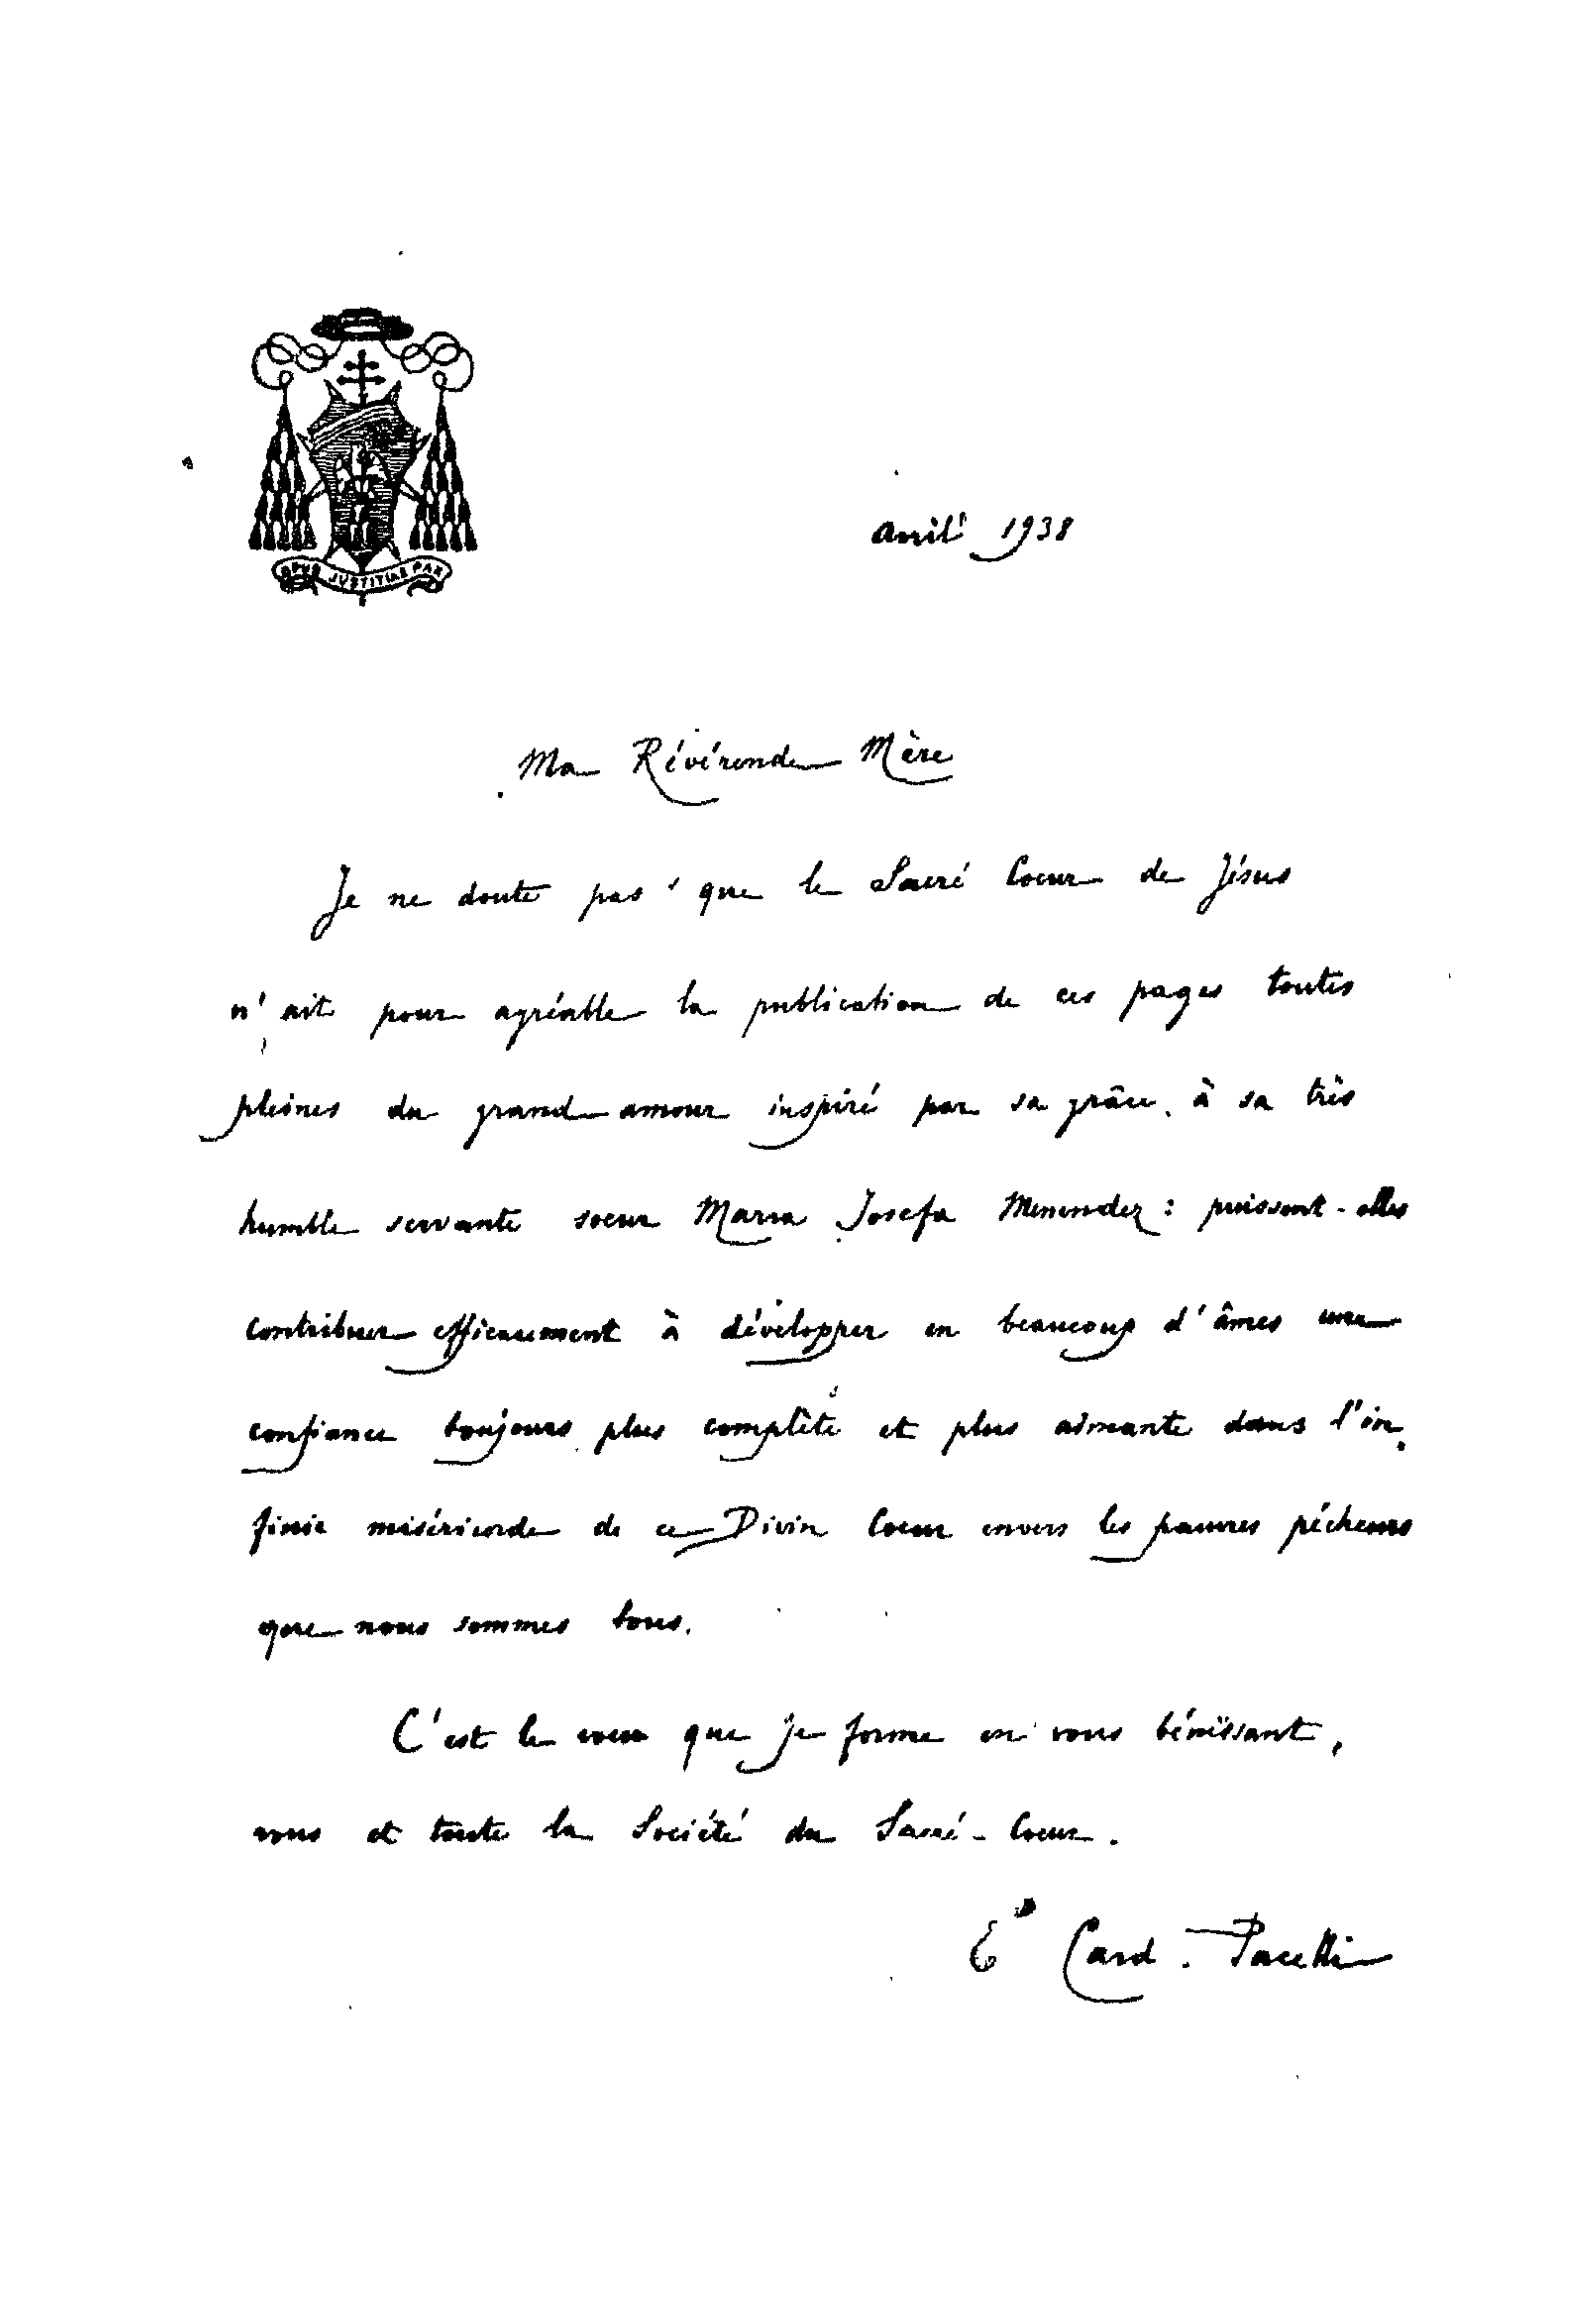 OPUS JUSTITIAE PAX
avril 1938
Ma Révérende Mère
Je ne doute pas que le Sacré Coeur de Jésus
n'ait pour agréable la publication de ces pages toutes
pleines du grand amour inspiré par sa grâce à sa très
humble servante soeur Maria Josefa Menendez : puissent-elles
contribuer efficacement à développer en beaucoup d'âmes une
confiance toujours plus complète et plus aimante dans l'in-
finie miséricorde de ce Divin Coeur envers les pauvres pécheurs
que nous sommes tous.
C'est le voeu que je forme en vous bénissant,
vous et toute la Société du Sacré-Coeur.
E Card. Pacelli